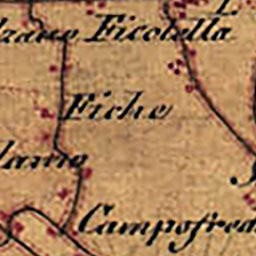 L
lzano Ficolella
Fiche
lamo
Campofred